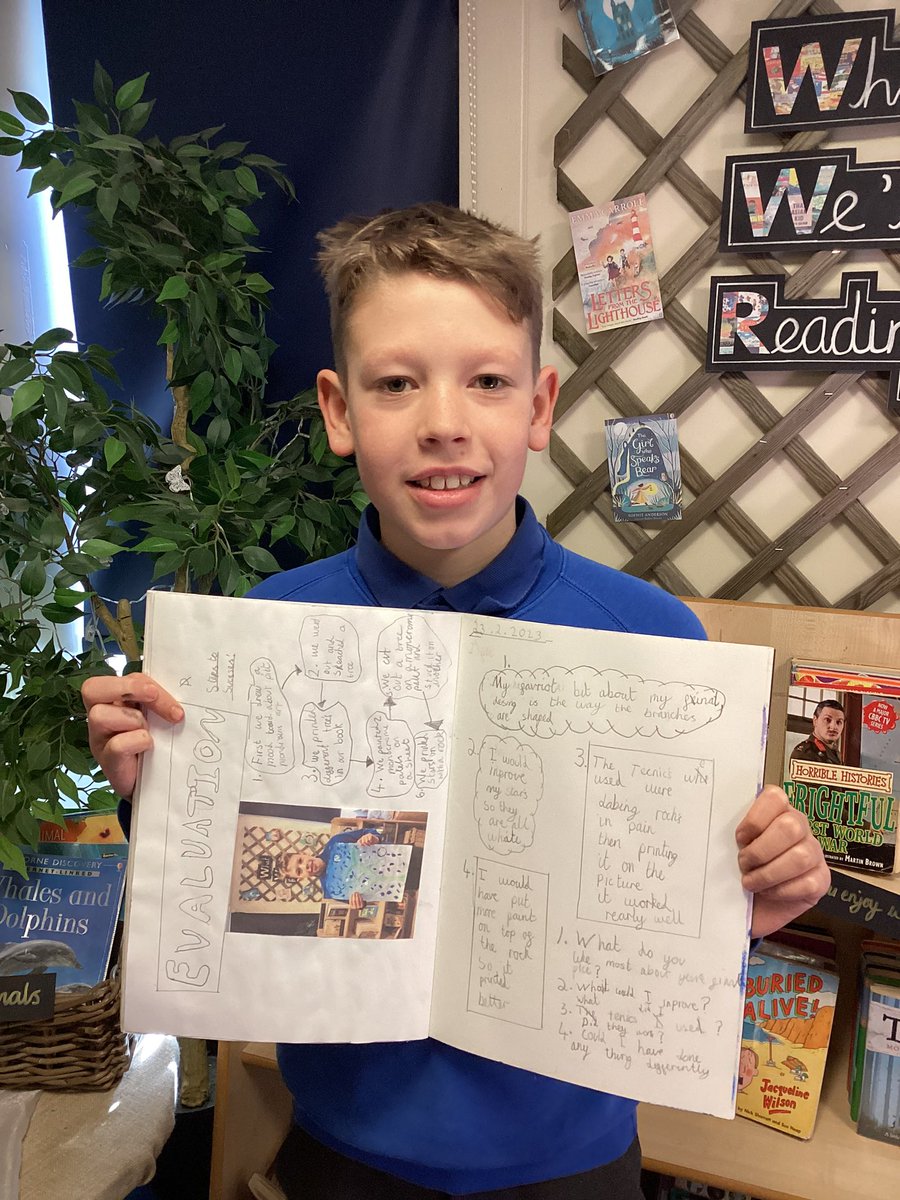 Wh
We's
Reading
EMMA CARROLL
LETTERS
FROM THE
LIGHTHOUSE
The
Girl
who
Speaks
Bear
SOPHIE ANDERSON
EVALUATION
Steps to
Success!
1. First we drew a
mood board about
2. We went
out and
sketched a
tree
3. we printed
different
in an book
4. We painted
a sheet
5. We cut
out a tree
and
stuck it on
another
6. We
with a rock
23.2.2023
1.
My bit about my
desing is the way the branches
are shaped
2.
I would
improve
my stars
So they
are all
white
3.
The Tecnics
used were
dabing rocks
in pain
then printing
it on the
Picture
it worked
rearly well
4.
I would
have put
more paint
on top of
the rock
So it
printed
better
1. What do you
like most about your
2. What would I improve?
3. The tecnics I used?
Did they work?
4. Could I have done
any thing differently
NOW A
MAJOR
CBBC TV
SERIES
HORRIBLE HISTORIES
FRIGHTFUL
FIRST WORLD
WAR
ILLUSTRATED BY MARTIN BROWN
you enjoy
BURIED
ALIVE!
Jacqueline
Wilson
Nick Sharratt and Sue Heap
DISCOVERY
INTERNET-LINKED
Whales and
Dolphins